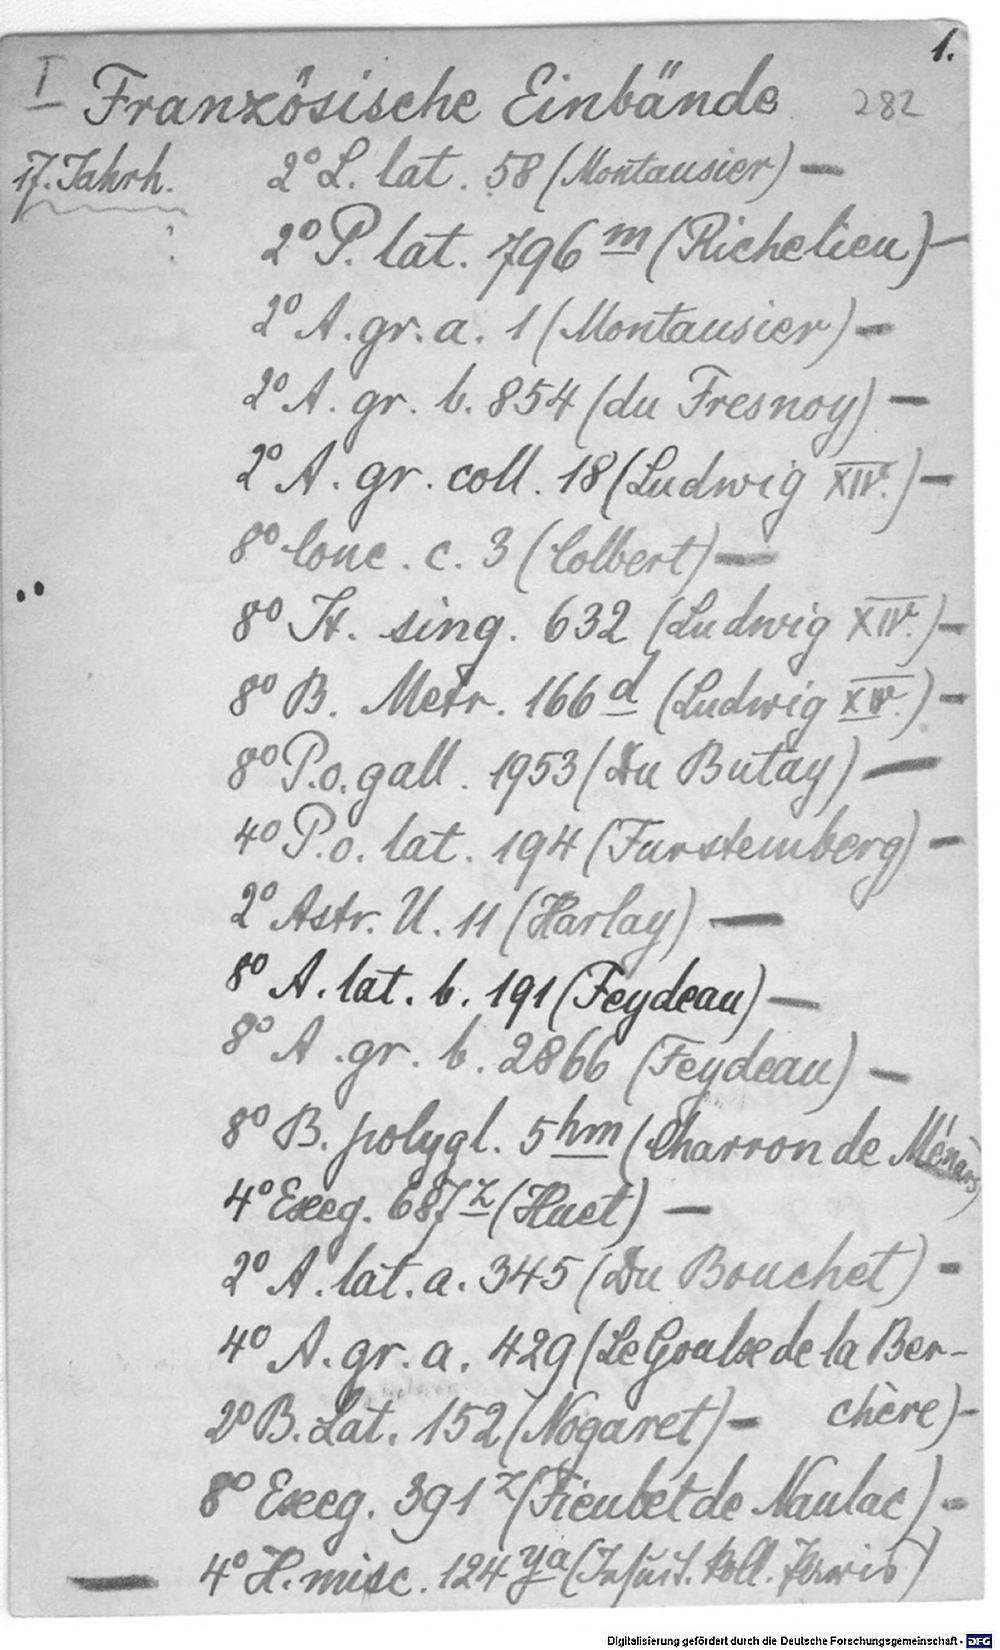 1.
I Französische Einbände 282
17. Jahrh. 2° L. lat. 58 (Montausier) —
2° P. lat. 796 m (Richelieu) —
2° A. gr. a. 1 (Montausier) —
2° A. gr. b. 854 (du Fresnoy) —
2° A. gr. coll. 18 (Ludwig XIV.) —
8° Conc. c. 3 (Colbert) —
8° H. sing. 632 (Ludwig XIV.) —
8° B. Metr. 166 d (Ludwig XIV.) —
8° P.o. gall. 1953 (Du Butay) —
4° P.o. lat. 194 (Furstemberg) —
2° Astr. U. 11 (Harlay) —
8° A. lat. b. 191 (Feydeau) —
8° A. gr. b. 2866 (Feydeau) —
8° B. polygl. 5 hm (Charron de Ménars)
4° Exeg. 687 z (Huet) —
2° A. lat. a. 345 (Du Bouchet) —
4° A. gr. a. 429 (Le Goulx de la Ber-
chère) —
2° B. Lat. 152 (Nogaret) —
8° Exeg. 391 z (Fieubet de Naulac) —
— 4° H. misc. 124 ya (Jesuit. Koll. Paris)
Digitalisierung gefördert durch die Deutsche Forschungsgemeinschaft - DFG